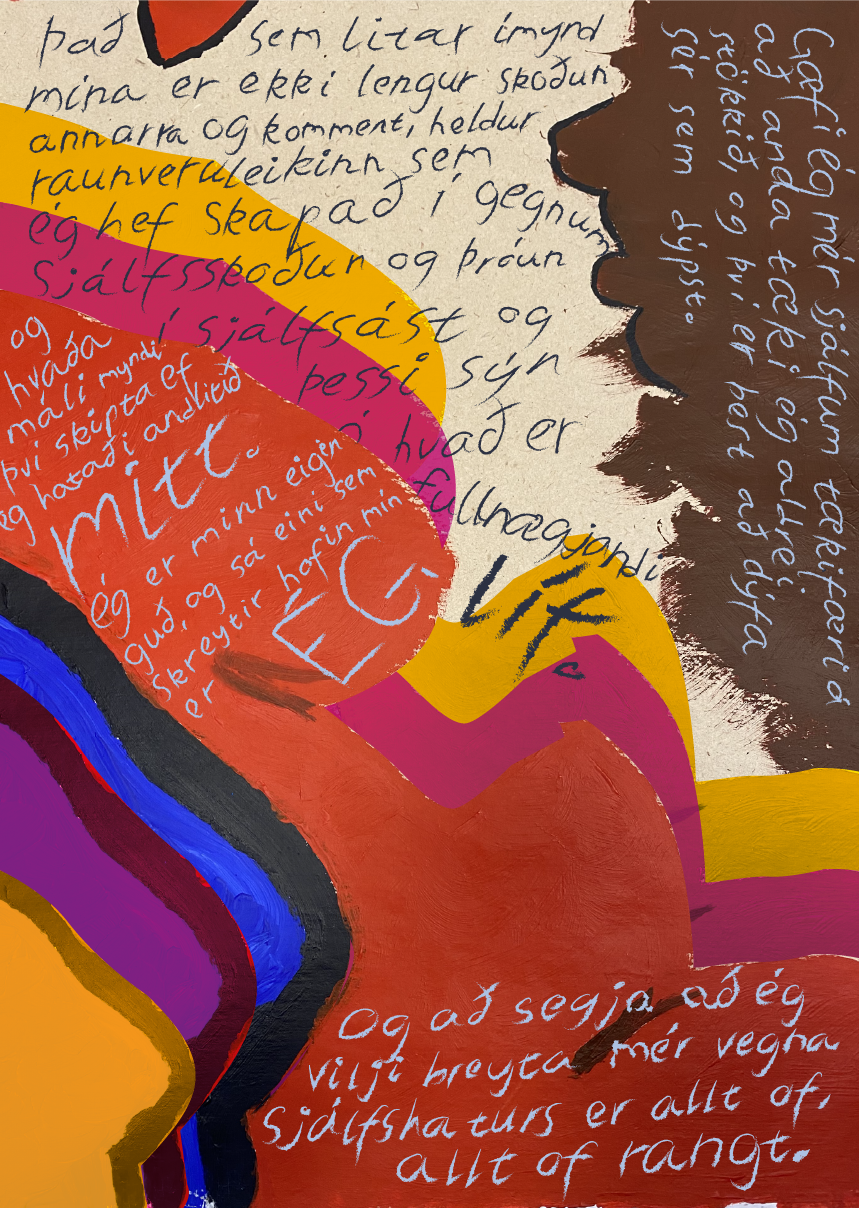 það sem litar ímynd
mína er ekki lengur skoðun
annarra og komment, heldur
raunveruleikinn sem
ég hef skapað í gegnum
sjálfsskoðun og þróun
í sjálfsást og
þessi sýn
á hvað er
fullnægjandi
Líf.
Gæfi ég mér sjálfum tækifæri á
að anda tæki ég aldrei
stökkið, og því er best að dýfa
sér sem dýpst.
og
hvaða
máli myndi
því skipta ef
ég hataði andlitið
mitt.
ég er minn eigin
guð, og sá eini sem
skreytir hofin mín
er ÉG
Og að segja að ég
vilji breyta mér vegna
sjálfshaturs er allt of,
allt of rangt.